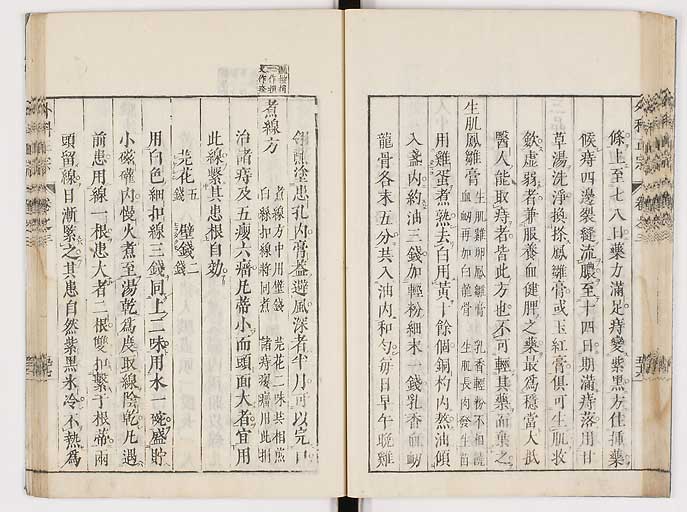 條上至七八日藥力滿足痔變紫黑方住插藥
候痔四邊裂縫流膿至十四日期滿痔落用甘
草湯洗淨換搽鳳雛膏或玉紅膏俱可生肌收
歛虛弱者兼服養血健脾之藥最爲穩當大抵
醫人能取痔者皆此方也不可輕其藥而棄之
生肌鳳雛膏 生肌雞卵鳳雛膏 乳香輕粉不相饒
血竭再加白龍骨 生肌長肉發生苗
用雞蛋煮熟去白用黃十餘個銅杓內熬油傾
入盞內約油三錢加輕粉細末一錢乳香血竭
龍骨各末五分共入油內和勻每日早午晚雞
翎蘸塗患孔內膏蓋避風深者半月可以完口
煮線方 煮線方中用壁錢 芫花二味共相煎
白絲扣線將同煮 諸痔瘿瘤用此捐
治諸痔及五瘿六瘤凡蒂小而頭面大者宜用
此線繫其患根自効
芫花五錢 壁錢二錢
用白色細扣線三錢同上二味用水一碗盛貯
小磁罐內慢火煮至湯乾爲度取線陰乾凡遇
前患用線一根患大者二根雙扣繫于根蒂兩
頭留線日漸緊之其患自然紫黑氷冷不熱爲
外科正宗
卷之三